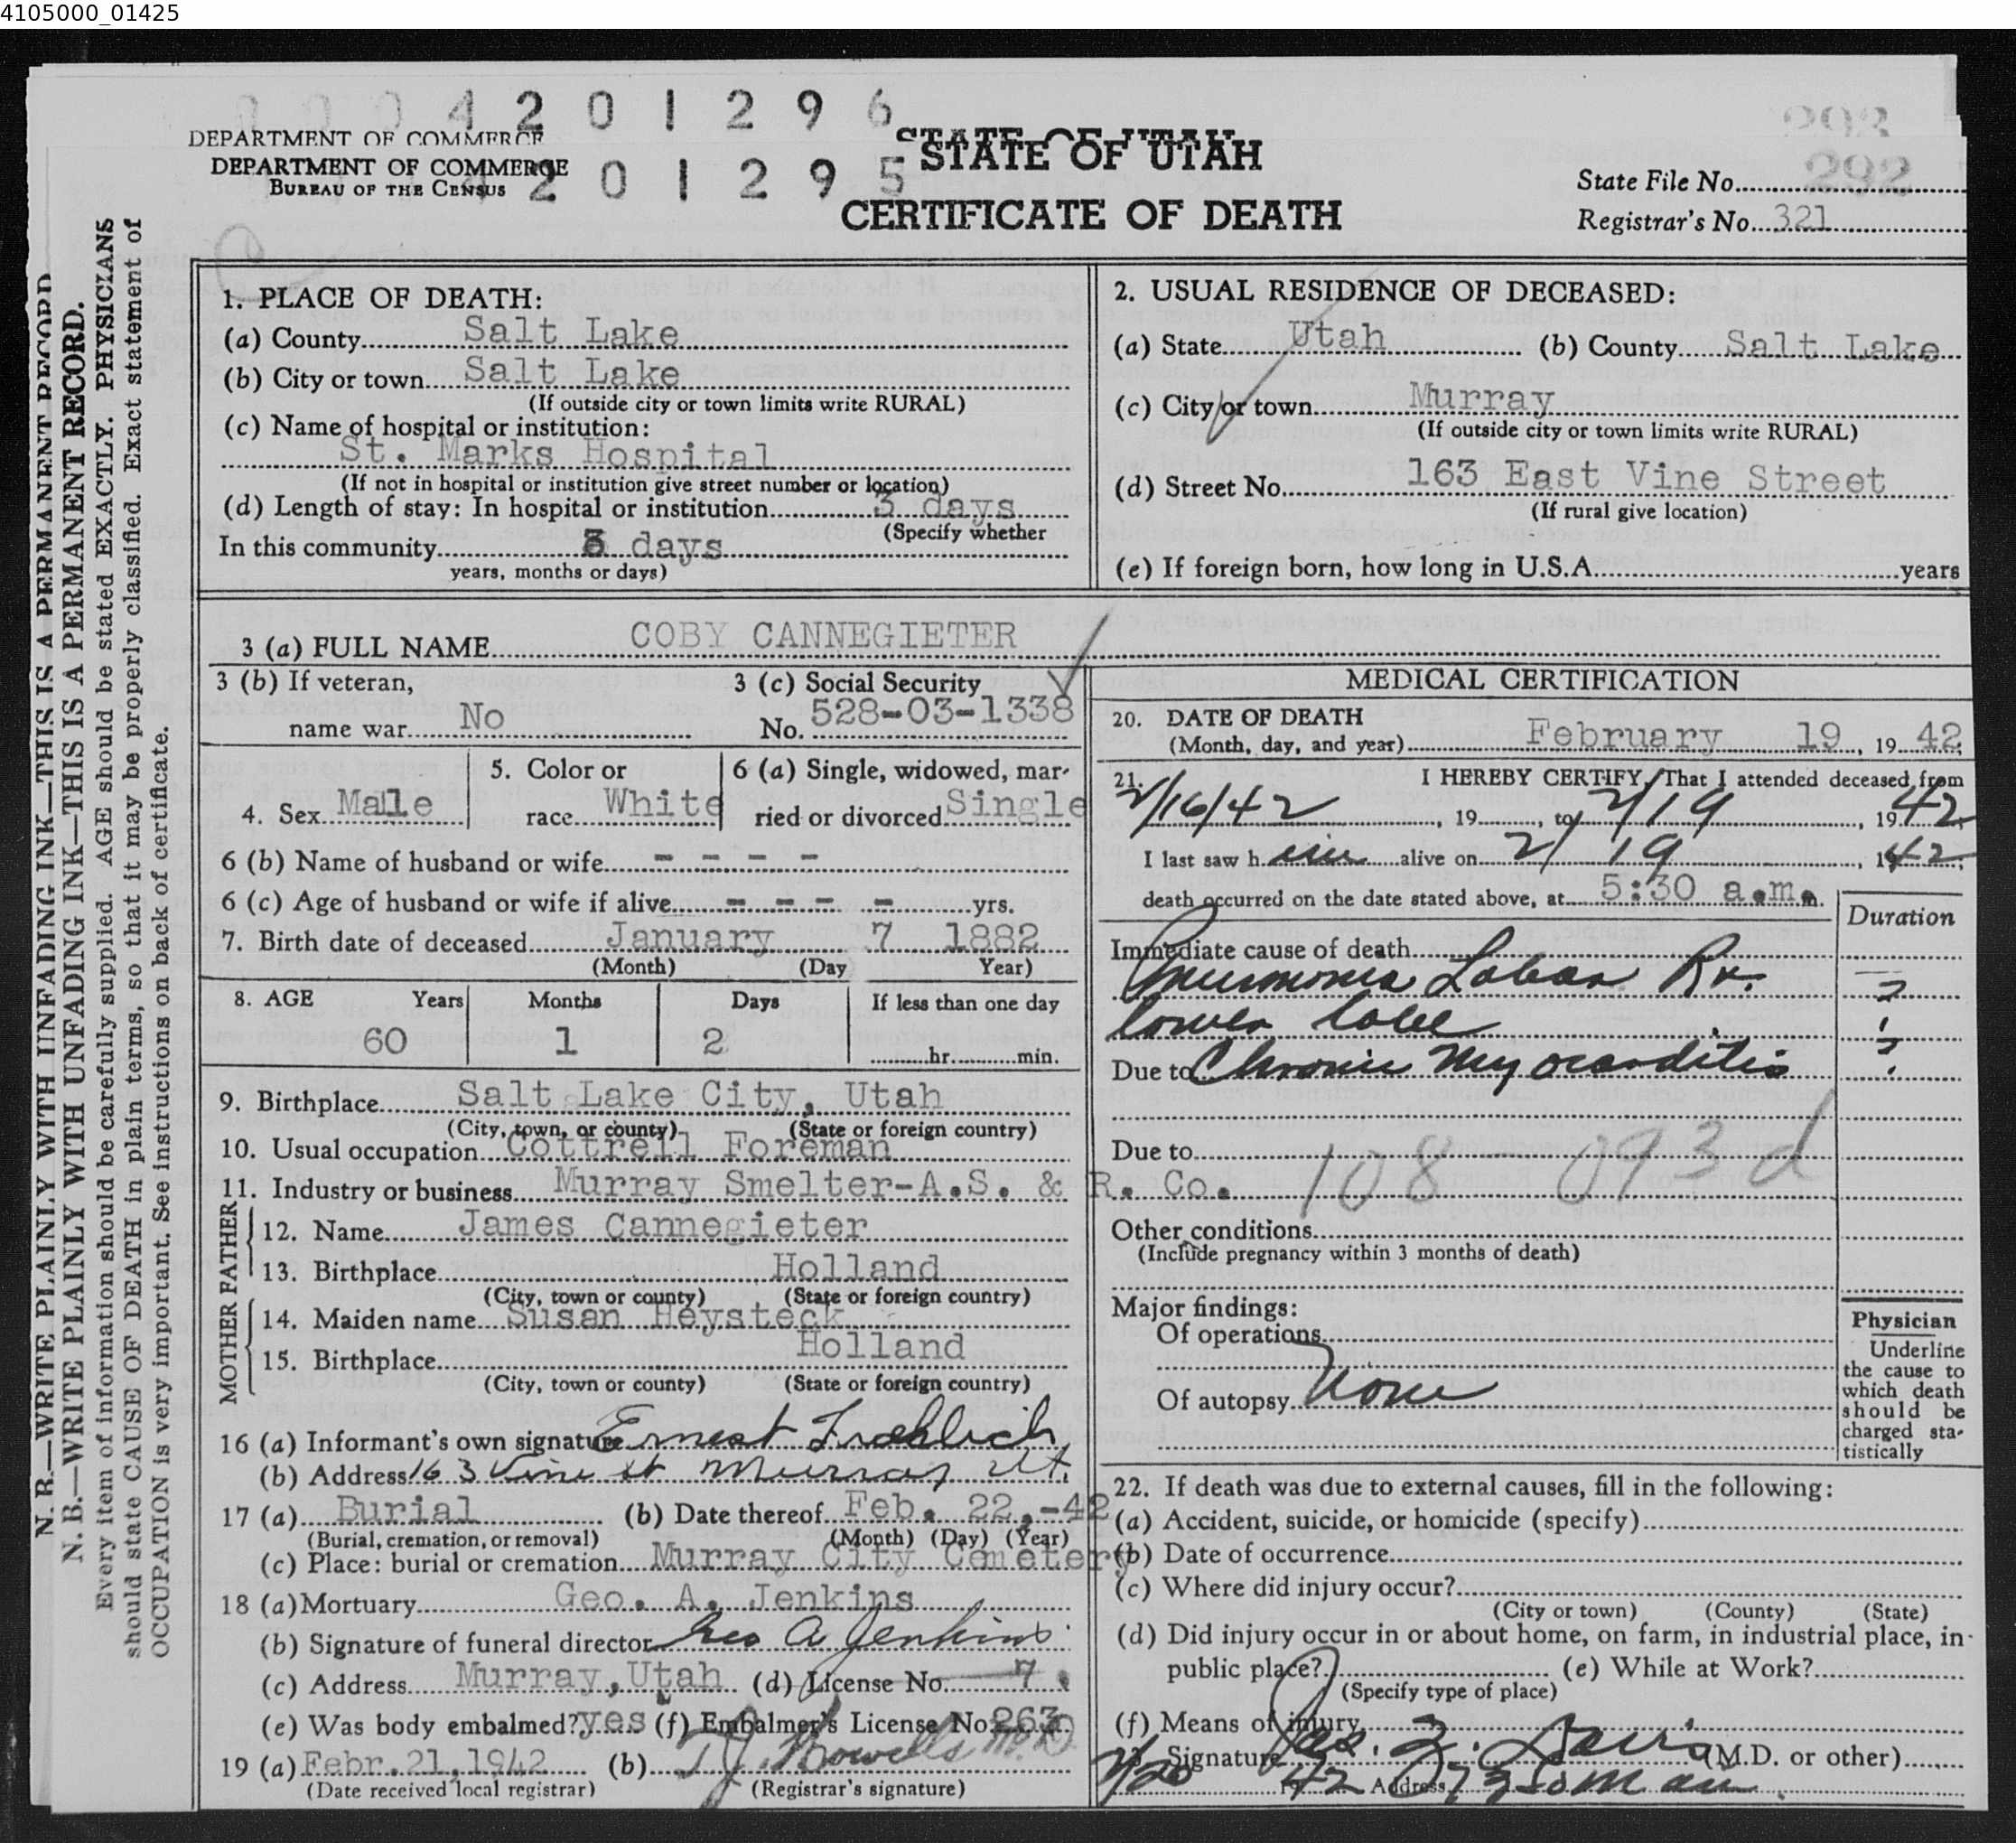 4105000_01425
0 0 0 4 2 0 1 2 9 6
DEPARTMENT OF COMMERCE
STATE OF UTAH
293
DEPARTMENT OF COMMERCE
BUREAU OF THE CENSUS
4 2 0 1 2 9 5
STATE OF UTAH
CERTIFICATE OF DEATH
State File No. 292
Registrar's No. 321
N. B.—WRITE PLAINLY WITH UNFADING INK—THIS IS A PERMANENT RECORD
N. B.—WRITE PLAINLY WITH UNFADING INK—THIS IS A PERMANENT RECORD.
Every item of information should be carefully supplied. AGE should be stated EXACTLY. PHYSICIANS
should state CAUSE OF DEATH in plain terms, so that it may be properly classified. Exact statement of
OCCUPATION is very important. See instructions on back of certificate.
1. PLACE OF DEATH:
(a) County Salt Lake
(b) City or town Salt Lake
(If outside city or town limits write RURAL)
(c) Name of hospital or institution:
St. Marks Hospital
(If not in hospital or institution give street number or location)
(d) Length of stay: In hospital or institution 3 days
(Specify whether
In this community 3 days
years, months or days)
2. USUAL RESIDENCE OF DECEASED:
(a) State Utah (b) County Salt Lake
(c) City or town Murray
(If outside city or town limits write RURAL)
(d) Street No. 163 East Vine Street
(If rural give location)
(e) If foreign born, how long in U.S.A. years
3 (a) FULL NAME COBY CANNEGIETER
3 (b) If veteran, name war No
3 (c) Social Security No. 528-03-1338
4. Sex Male
5. Color or race White
6 (a) Single, widowed, married or divorced Single
6 (b) Name of husband or wife - - - -
6 (c) Age of husband or wife if alive - - - - yrs.
7. Birth date of deceased January 7 1882
(Month) (Day Year)
8. AGE Years Months Days If less than one day
60 1 2 hr. min.
9. Birthplace Salt Lake City, Utah
(City, town, or county) (State or foreign country)
10. Usual occupation Cottrell Foreman
11. Industry or business Murray Smelter-A.S. & R. Co.
FATHER
12. Name James Cannegieter
13. Birthplace Holland
(City, town or county) (State or foreign country)
MOTHER
14. Maiden name Susan Heysteck
15. Birthplace Holland
(City, town or county) (State or foreign country)
16 (a) Informant's own signature Ernest Froehlich
(b) Address 163 Vine st Murray Ut.
17 (a) Burial (b) Date thereof Feb. 22,-42
(Burial, cremation, or removal) (Month) (Day) (Year)
(c) Place: burial or cremation Murray City Cemetery
18 (a) Mortuary Geo. A. Jenkins
(b) Signature of funeral director Geo A Jenkins
(c) Address Murray, Utah (d) License No. 7
(e) Was body embalmed? yes (f) Embalmer's License No. 263
19 (a) Febr. 21, 1942 (b) T J Howells M.D.
(Date received local registrar) (Registrar's signature)
MEDICAL CERTIFICATION
20. DATE OF DEATH
(Month, day, and year) February 19, 19 42
21. I HEREBY CERTIFY, That I attended deceased from
2/16/42, 19 , to 2/19, 19 42
I last saw h im alive on 2/19, 1942
death occurred on the date stated above, at 5:30 a.m.
Duration
Immediate cause of death
Pneumonia Lobar Rt. ?
lower lobe
Due to Chronic Myocarditis ?
Due to
108 - 093d
Other conditions
(Include pregnancy within 3 months of death)
Major findings:
Of operations
Of autopsy None
Physician
Underline
the cause to
which death
should be
charged sta-
tistically
22. If death was due to external causes, fill in the following:
(a) Accident, suicide, or homicide (specify)
(b) Date of occurrence
(c) Where did injury occur?
(City or town) (County) (State)
(d) Did injury occur in or about home, on farm, in industrial place, in
public place? (e) While at Work?
(Specify type of place)
(f) Means of injury
Signature Jas. Z. Davis (M.D. or other)
2/20 19 42 Address